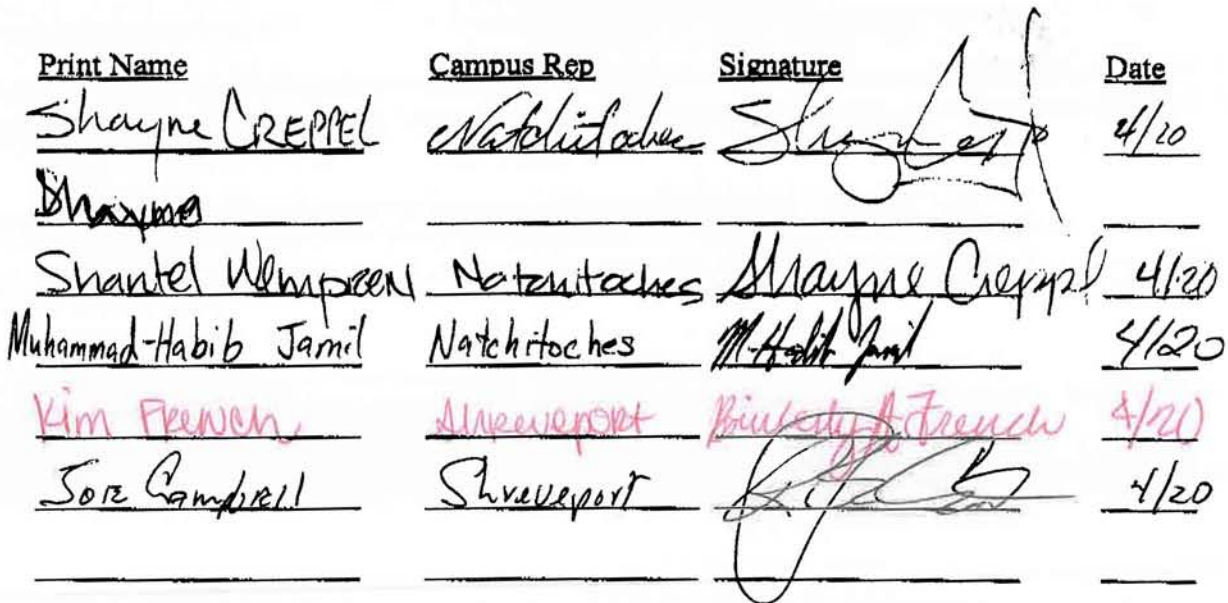 Print Name Campus Rep Signature Date
Shayne CREPPEL Natchitoches 4/20
Shantel Natchitoches Shayne Creppel 4/20
Muhammad-Habib Jamil Natchitoches M-Habib Jamil 4/20
Kim French Shreveport Kimberly A. French 4/20
Joe Campbell Shreveport 4/20